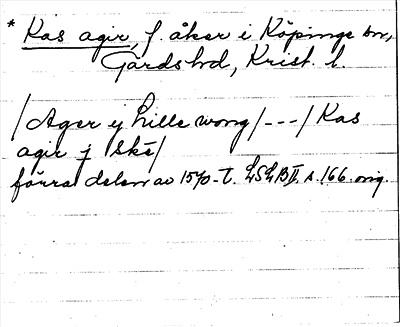 * Kas agir, f. åker i Köpinge sn,
Gärds hd, Krist. l.
/Ager ej hille wong/---/Kas
agir j Skē/
förra delen av 1570-t. LSLB II. s. 166. orig.